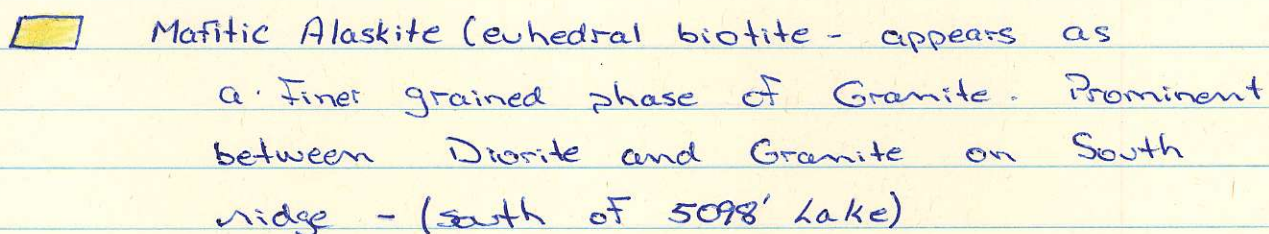 Mafitic Alaskite (euhedral biotite - appears as
a finer grained phase of Granite. Prominent
between Diorite and Granite on South
ridge - (south of 5098' Lake)